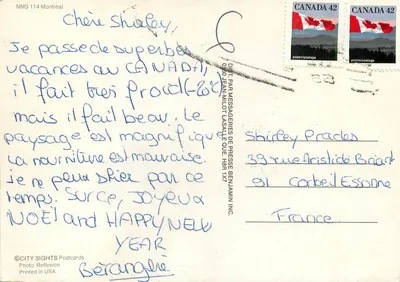 NMS 114 Montréal
Chère Shirley,
Je passe de superbes
vacances au CANADA,
il fait très froid (-20°C)
mais il fait beau. Le
paysage est magnifique
La nourriture est mauvaise.
je ne peux skier par ce
temps. Sur ce, JOYEUX
NOËL and HAPPY NEW
YEAR
Bérangère
©CITY SIGHTS Postcards
Photo: Reflexion
Printed in USA
DIST. PAR MESSAGERIES DE PRESSE BENJAMIN INC.
JEAN-MILOT LASALLE QUE. H8R 1X7
CANADA 42
CANADA 42
Shirley Prades
39 rue Aristide Briant
91 Corbeil Essonne
France